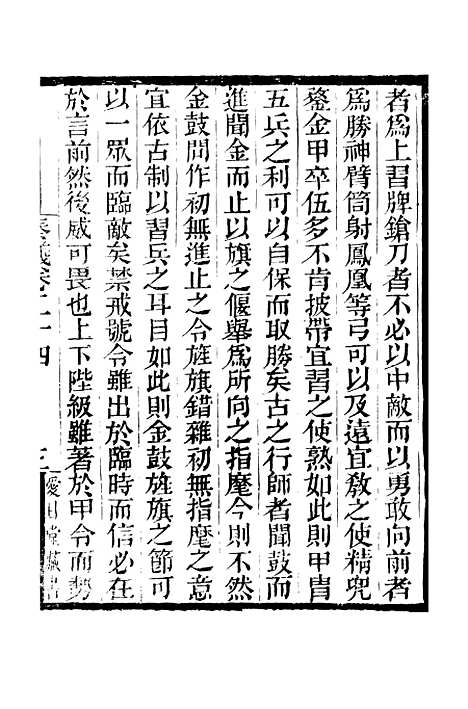 者爲上習牌鎗刀者不必以中敵而以勇敢向前者
爲勝神臂筒射鳳凰等弓可以及遠宜敎之使精兜
鍪金甲卒伍多不肯披帶宜習之使熟如此則甲冑
五兵之利可以自保而取勝矣古之行師者聞鼓而
進聞金而止以旗之偃舉爲所向之指麾今則不然
金鼓間作初無進止之令旌旗錯雜初無指麾之意
宜依古制以習兵之耳目如此則金鼓旌旗之節可
以一眾而臨敵矣禁戒號令雖出於臨時而信必在
於言前然後威可畏也上下陛級雖著於甲令而勢
奏議卷二十四 三 愛日堂藏書